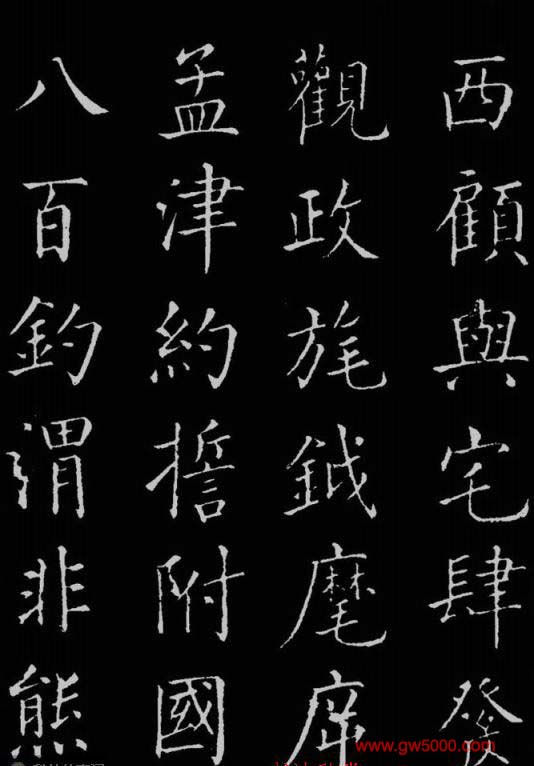 西顧與宅肆發
觀政旄鉞麾
孟津約誓附國
八百釣渭非熊
www.gw5000.com